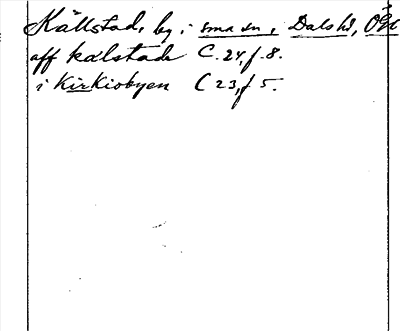 Källstad, by, i sma sn, Dals hd, Ögl
aff kälstada C. 24, f. 8.
i Kirkiobyen C 23, f 5.